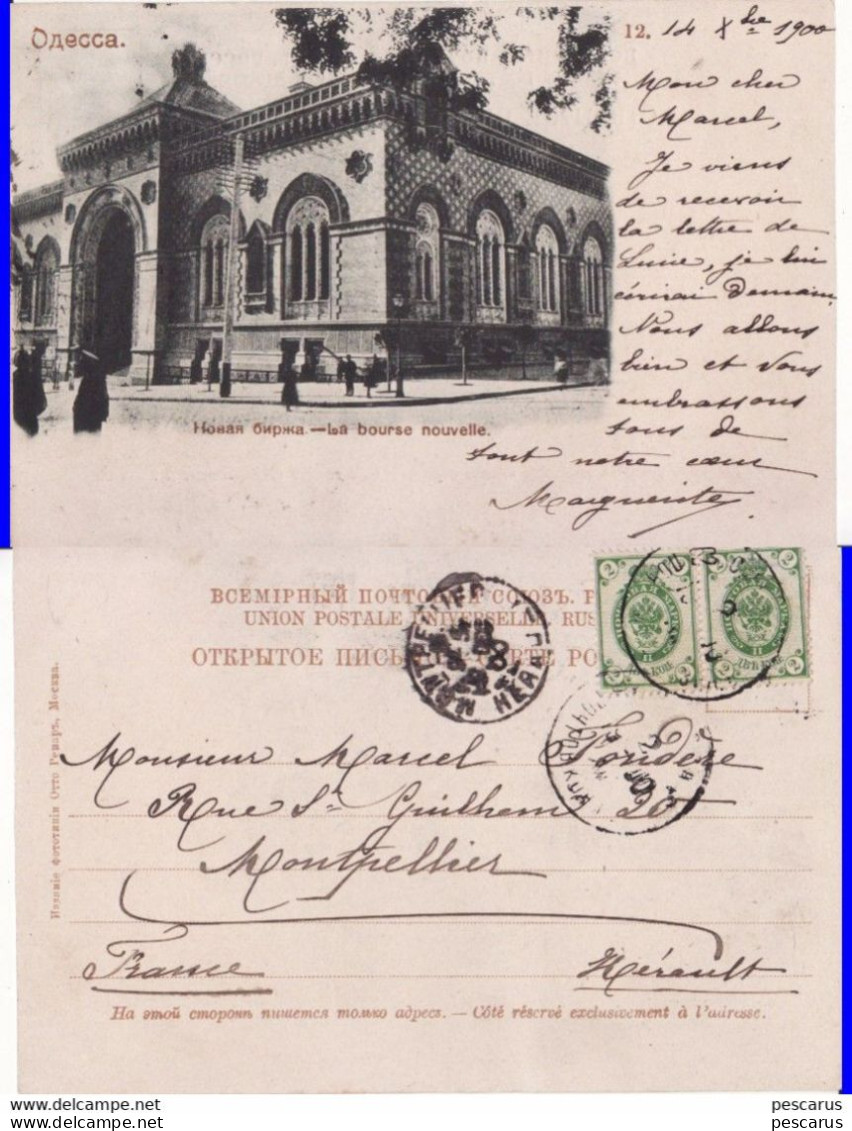 Одесса.
12. 14 Xbre 1900
Mon cher
Marcel,
Je viens
de recevoir
la lettre de
je lui
écrirai demain.
Nous allons
bien et vous
embrassons
tous de
tout notre cœur
Marguerite
Новая биржа.—La bourse nouvelle.
ВСЕМІРНЫЙ ПОЧТО СОЮЗЪ. Р
UNION POSTALE UNIVERSELLE. RUS
ОТКРЫТОЕ ПИСЬ
MONTPELLIER
2 2 2 2
Monsieur Marcel
Rue St Guilhem 30
Montpellier
France Hérault
На этой сторонѣ пишется только адресъ. — Côté réservé exclusivement à l'adresse.
Изданіе Фототипіи Отто Ренаръ, Москва.
delcampe.net
delcampe.net
pescarus
pescarus